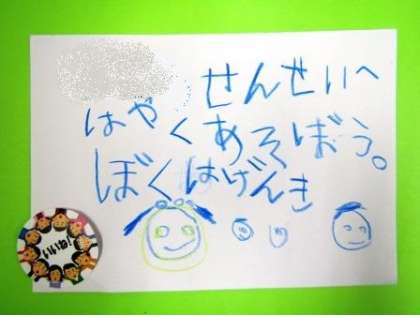 せんせいへ
はやくあそぼう。
ぼくはげんき